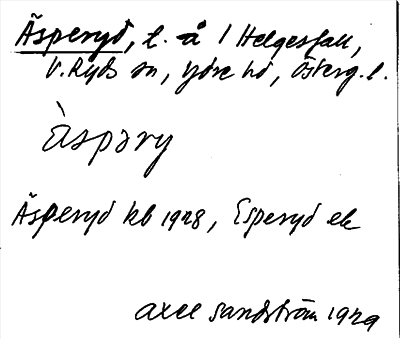 Äsperyd, t. å 1 Helgesfall,
V. Ryds sn, Ydre hd, Österg. l.
àspəry
Äsperyd kb 1928, Esperyd ek
Axel Sandström 1929